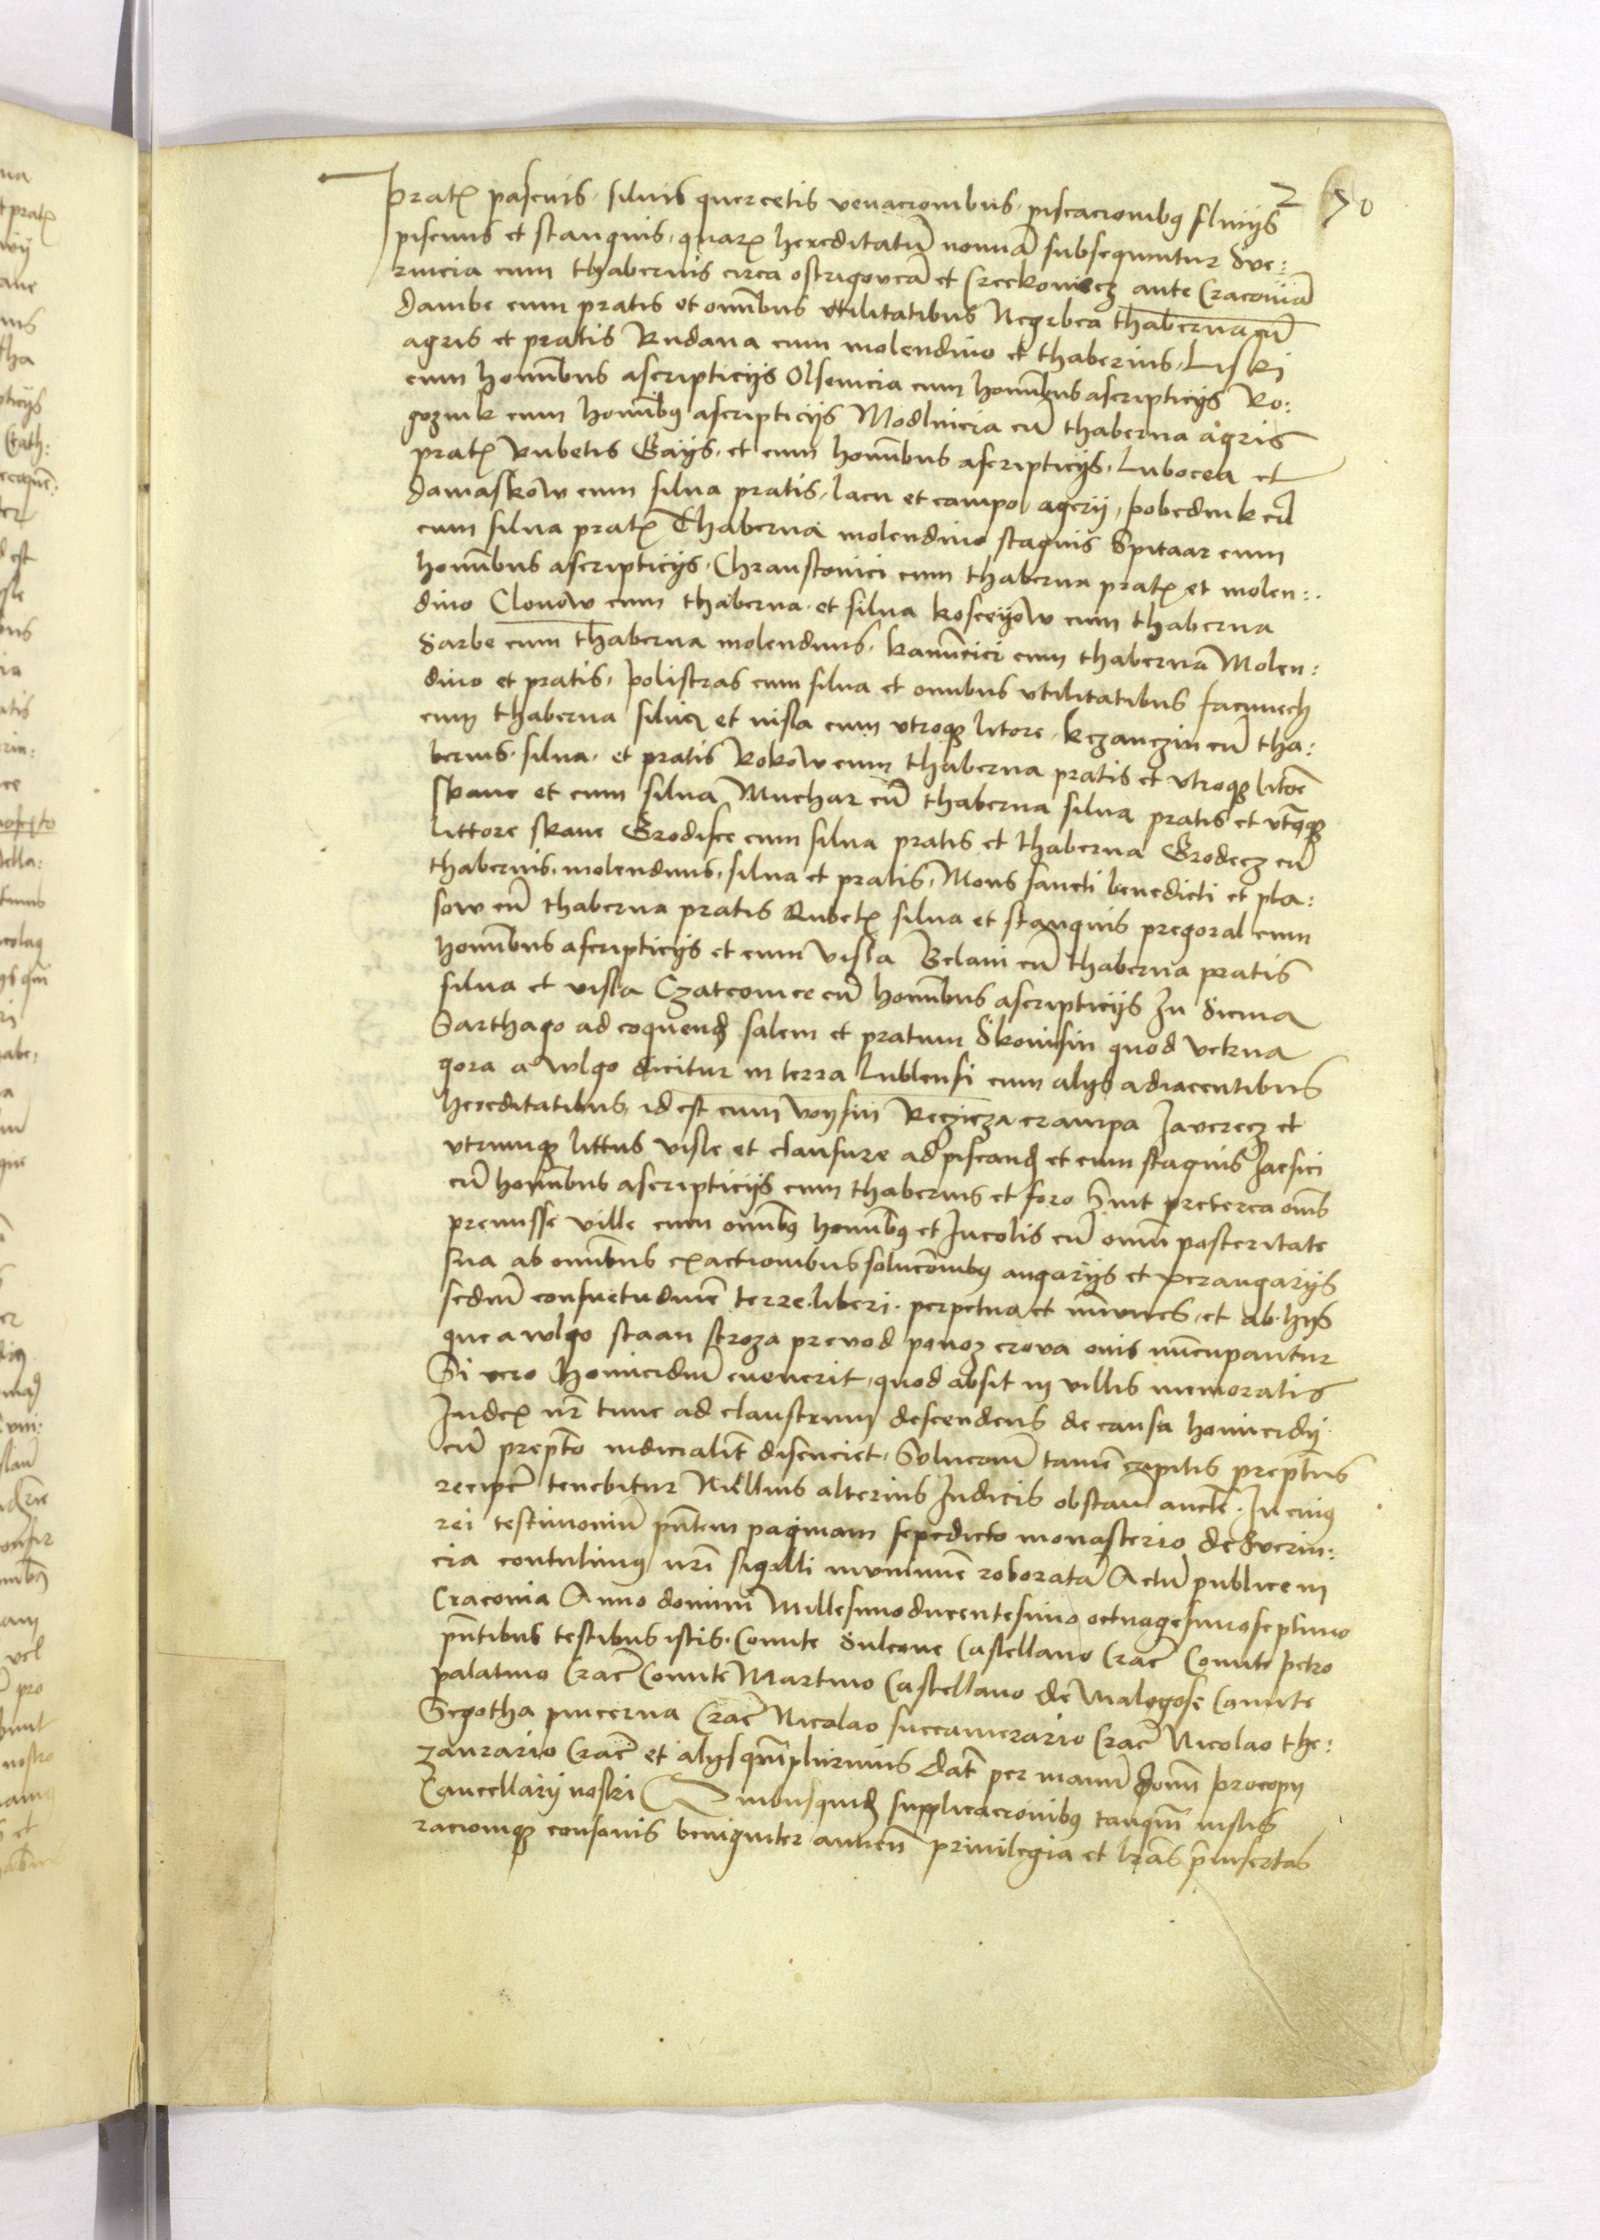 270
pratꝭ pascuis, siluis quercetis venacionibus, piscacionibꝯ fluuijs
piscinis et stanguis, quarꝝ hereditatū nomiā subsequuntur Sve:
rincia cum thabernis circa ostrigoucā et Creckonicz ante Cracouiā
dambe cum pratis et omībus vtilitatibus Negrbca thaberna cū
agris et pratis Rudana cum molendino et thabernis, Liski
cum homībus ascripticijs Olsenicia cum homībus ascripticijs Ro:
goznik cum homībꝯ ascripticijs Modlnicia cū thaberna agris
pratꝭ Rubetis Gays, et cum homībus ascripticijs, Lubocea et
Damaskow cum silua pratis, lacu et campo agerij, pobednik cū
cum silua pratꝭ Thaberna molendino stagnis Spitaar cum
homībus ascripticijs, Chraustouici cum thaberna pratꝭ et molen:
dino Clonow cum thaberna, et silua kosceyow cum thaberna
Sarbe cum thaberna molendinis, kamēcici cum thaberna Molen:
dino et pratis, polistras cum silua et omībus vtilitatibus facimiech
cum thaberna silua et visla cum vtroqꝫ litore, kczanczin cū tha:
bernis, silua, et pratis Rokow cum thaberna pratis et vtroqꝫ litore
skaue et cum silua Muchar cū thaberna silua pratis et vtroqꝫ
littore skaue Grodisce cum silua pratis et thaberna Grodecz cū
thabernis, molendinis, silua et pratis, Mons sancti benedicti et pla:
sow cū thaberna pratis Rubetꝭ silua et stanguis pregoral cum
homībus ascripticijs et cum visla Belani cū thaberna pratis
silua et visla Czateouice cū homībus ascripticijs In Sicina
Sarthago ad coquendꝫ salem et pratum Skouisin quod vetrna
gora a wlgo dicitur in terra lublensi cum alijs adiacentibus
hereditatibus, id est cum voysin Reczicza crampa Iauerecz et
vtrumqꝫ littus visle et clausure ad piscandꝫ et cum stagnis Iaesici
cū homībus ascripticijs cum thabernis et foro Sint preterea omēs
premisse ville cum omībꝯ homībꝯ et Incolis cū omni posteritate
sua ab omībus exactionibus solucōnibꝯ angarijs et perangarijs
sedm̄ consuetudinē terre, liberi, perpetua et immunes, et ab hijs
que a wlgo staan stroza prevod povoz crova ouis nūcupantur
Si vero homicidiū euenerit, quod absit in villis memoratis
Iudex nr̄ tunc ad claustrum descendens de causa homicidij
cū prepto iudicialit̄ discuciet, Solucōm̄ tamē capitis prepitus
recipe tenebitur Nullius alterius Iudicis obstan̄ aucte. In cuius
rei testimoniū pn̄tem paginam sepedicto monasterio de Sverin:
cia contulimꝯ nrī sigilli munimine roboratā Actū publice in
Cracouia Anno domini Millesimo ducentesimo octuagesimo septimo
pn̄tibus testibus istis. Comite Sulcone Castellano Crac̄ Comite petro
palatino Crac̄ Comite Martino Castellano de Malogose Comite
Segotha pincerna Crac̄ Nicolao succamerario Crac̄ Nicolao the:
zaurario Crac̄ et alijs qm̄plurimis Dat̄ per manū domī procopij
Cancellarij nostri supplicacionibꝯ tanqm̄ iustis
racioniqꝫ consonis benigniter annuen̄ priuilegia et lrās p̄insertas